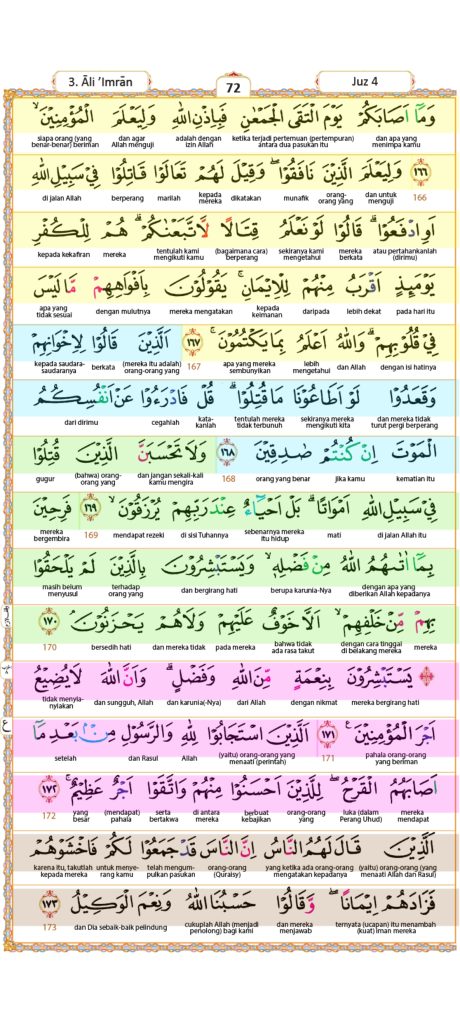 3. Āli 'Imrān 72 Juz 4
وَمَآ اَصَابَكُمْ يَوْمَ الْتَقَى الْجَمْعٰنِ فَبِاِذْنِ اللّٰهِ وَلِيَعْلَمَ الْمُؤْمِنِيْنَۙ
siapa orang (yang benar-benar) beriman dan agar Allah menguji adalah dengan izin Allah) ketika terjadi pertemuan (pertempuran) antara dua pasukan itu dan apa yang menimpa kamu
١٦٦ وَلِيَعْلَمَ الَّذِيْنَ نَافَقُوْاۖ وَقِيْلَ لَهُمْ تَعَالَوْا قَاتِلُوْا فِيْ سَبِيْلِ اللّٰهِ
di jalan Allah berperang marilah kepada mereka dikatakan munafik orang-orang yang dan untuk menguji 166
اَوِ ادْفَعُوْاۗ قَالُوْا لَوْ نَعْلَمُ قِتَالًا لَّاتَّبَعْنٰكُمْۗ هُمْ لِلْكُفْرِ
kepada kekafiran mereka tentulah kami mengikuti kamu (bagaimana cara) berperang sekiranya kami mengetahui mereka berkata atau pertahankanlah (dirimu)
يَوْمَىِٕذٍ اَقْرَبُ مِنْهُمْ لِلْاِيْمَانِۚ يَقُوْلُوْنَ بِاَفْوَاهِهِمْ مَّا لَيْسَ
apa yang tidak sesuai dengan mulutnya mereka mengatakan kepada keimanan daripada lebih dekat pada hari itu
فِيْ قُلُوْبِهِمْۗ وَاللّٰهُ اَعْلَمُ بِمَا يَكْتُمُوْنَۚ ١٦٧ اَلَّذِيْنَ قَالُوْا لِاِخْوَانِهِمْ
kepada saudara-saudaranya berkata (mereka itu adalah) orang-orang yang 167 apa yang mereka sembunyikan lebih mengetahui dan Allah dengan isi hatinya
وَقَعَدُوْا لَوْ اَطَاعُوْنَا مَا قُتِلُوْاۗ قُلْ فَادْرَءُوْا عَنْ اَنْفُسِكُمُ
dari dirimu cegahlah kata-kanlah tentulah mereka tidak terbunuh sekiranya mereka mengikuti kita dan mereka tidak turut pergi berperang
الْمَوْتَ اِنْ كُنْتُمْ صٰدِقِيْنَ ١٦٨ وَلَا تَحْسَبَنَّ الَّذِيْنَ قُتِلُوْا
gugur (bahwa) orang-orang yang dan jangan sekali-kali kamu mengira 168 orang yang benar jika kamu kematian itu
فِيْ سَبِيْلِ اللّٰهِ اَمْوَاتًاۗ بَلْ اَحْيَاۤءٌ عِنْدَ رَبِّهِمْ يُرْزَقُوْنَۙ ١٦٩ فَرِحِيْنَ
mereka bergembira 169 mendapat rezeki di sisi Tuhannya sebenarnya mereka itu hidup mati di jalan Allah itu
بِمَآ اٰتٰىهُمُ اللّٰهُ مِنْ فَضْلِهٖۙ وَيَسْتَبْشِرُوْنَ بِالَّذِيْنَ لَمْ يَلْحَقُوْا
masih belum menyusul terhadap orang yang dan bergirang hati berupa karunia-Nya dengan apa yang diberikan Allah kepadanya
بِهِمْ مِّنْ خَلْفِهِمْۙ اَلَّا خَوْفٌ عَلَيْهِمْ وَلَا هُمْ يَحْزَنُوْنَۘ ١٧٠
170 bersedih hati dan mereka tidak pada mereka bahwa tidak ada rasa takut dengan cara tinggal di belakang mereka mereka
يَسْتَبْشِرُوْنَ بِنِعْمَةٍ مِّنَ اللّٰهِ وَفَضْلٍۗ وَاَنَّ اللّٰهَ لَا يُضِيْعُ
tidak menyia-nyiakan dan sungguh, Allah dan karunia(-Nya) dari Allah dengan nikmat mereka bergirang hati
اَجْرَ الْمُؤْمِنِيْنَۚ ١٧١ اَلَّذِيْنَ اسْتَجَابُوْا لِلّٰهِ وَالرَّسُوْلِ مِنْۢ بَعْدِ مَآ
setelah dan Rasul Allah (yaitu) orang-orang yang menaati (perintah) 171 pahala orang-orang yang beriman
اَصَابَهُمُ الْقَرْحُۖ لِلَّذِيْنَ اَحْسَنُوْا مِنْهُمْ وَاتَّقَوْا اَجْرٌ عَظِيْمٌۚ ١٧٢
172 yang besar (mendapat) pahala serta bertakwa di antara mereka berbuat kebajikan orang-orang yang luka (dalam Perang Uhud) mereka mendapat
اَلَّذِيْنَ قَالَ لَهُمُ النَّاسُ اِنَّ النَّاسَ قَدْ جَمَعُوْا لَكُمْ فَاخْشَوْهُمْ
karena itu, takutlah kepada mereka untuk menye-rang kamu telah mengum-pulkan pasukan orang-orang (Quraisy) yang ketika ada orang-orang mengatakan kepadanya (yaitu) orang-orang (yang menaati Allah dan Rasul)
فَزَادَهُمْ اِيْمَانًاۖ وَّقَالُوْا حَسْبُنَا اللّٰهُ وَنِعْمَ الْوَكِيْلُ ١٧٣
173 dan Dia sebaik-baik pelindung cukuplah Allah (menjadi penolong) bagi kami dan mereka menjawab ternyata (ucapan) itu menambah (kuat) iman mereka
ع